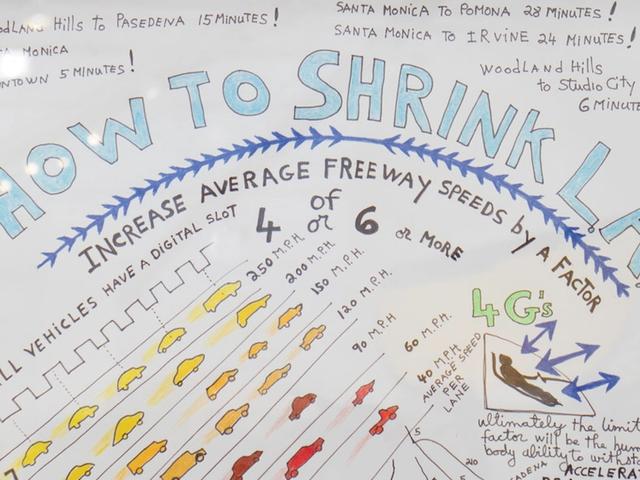 Hills to PASEDENA 15 MINUTES!
MONICA
5 MINUTES!
SANTA MONICA to POMONA 28 MINUTES!
SANTA MONICA to IRVINE 24 MINUTES!
WOODLAND Hills
to Studio City
6 MINUTE
HOW TO SHRINK L.A.
INCREASE AVERAGE FREEWAY SPEEDS by A FACTOR
of
4 or 6 or MORE
ALL VEHICLES HAVE A DIGITAL SLOT
250 M.P.H.
200 M.P.H.
150 M.P.H.
120 M.P.H.
90 M.P.H
60 M.P.H.
40 M.P.H.
AVERAGE SPEED
PER
LANE
4 G's
ultimately the limit
factor will be the
body ability to
ACCELERA
5